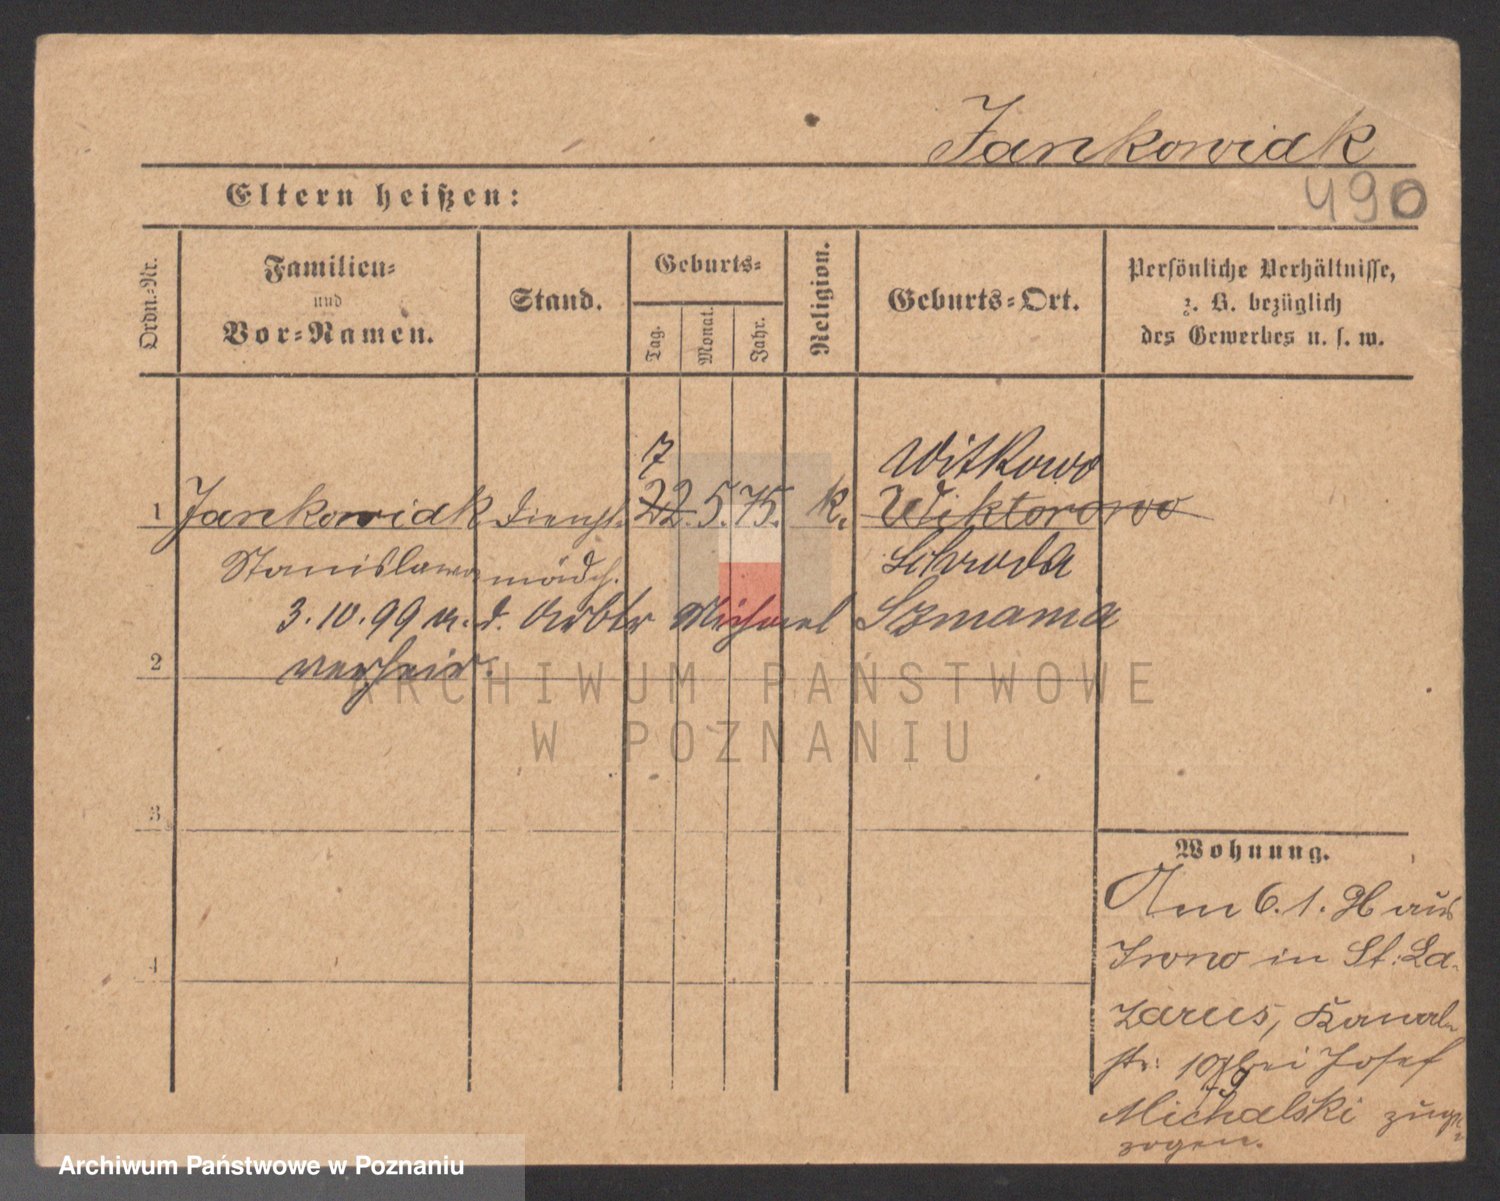 Jankowiak
Eltern heißen:
490
Ordn.-Nr.
Familien-
und
Vor-Namen.
Stand.
Geburts-
Tag.
Monat.
Jahr.
Religion.
Geburts-Ort.
Persönliche Verhältnisse,
z. B. bezüglich
des Gewerbes u. s. w.
7
Witkowo
1 Jankowiak Dienst- 22. 5. 75. k. Wiktorowo
Stanislawa mädch. Schroda
3.10.99 m. d. Arbtr Michael Szmania
2 verheir.
3
4
Wohnung.
Am 6.1. aus
in St. La-
zarus, Kanal-
str. 10 bei Josef
19
Michalski zuge-
zogen.
ARCHIWUM PAŃSTWOWE
W POZNANIU
Archiwum Państwowe w Poznaniu